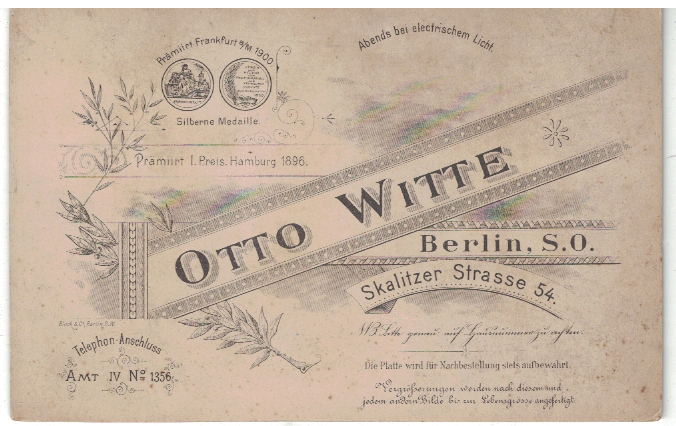 Prämiirt Frankfurt a/M 1900
Silberne Medaille.
Prämiirt I. Preis. Hamburg 1896.
Abends bei electrischem Licht.
OTTO WITTE
Berlin, S.O.
Skalitzer Strasse 54.
NB. Bitte genau auf Hausnummer zu achten.
Die Platte wird für Nachbestellung stets aufbewahrt.
Vergrößerungen werden nach diesem und
jedem andern Bilde bis zur Lebensgrösse angefertigt.
Telephon-Anschluss
AMT IV No 1356.